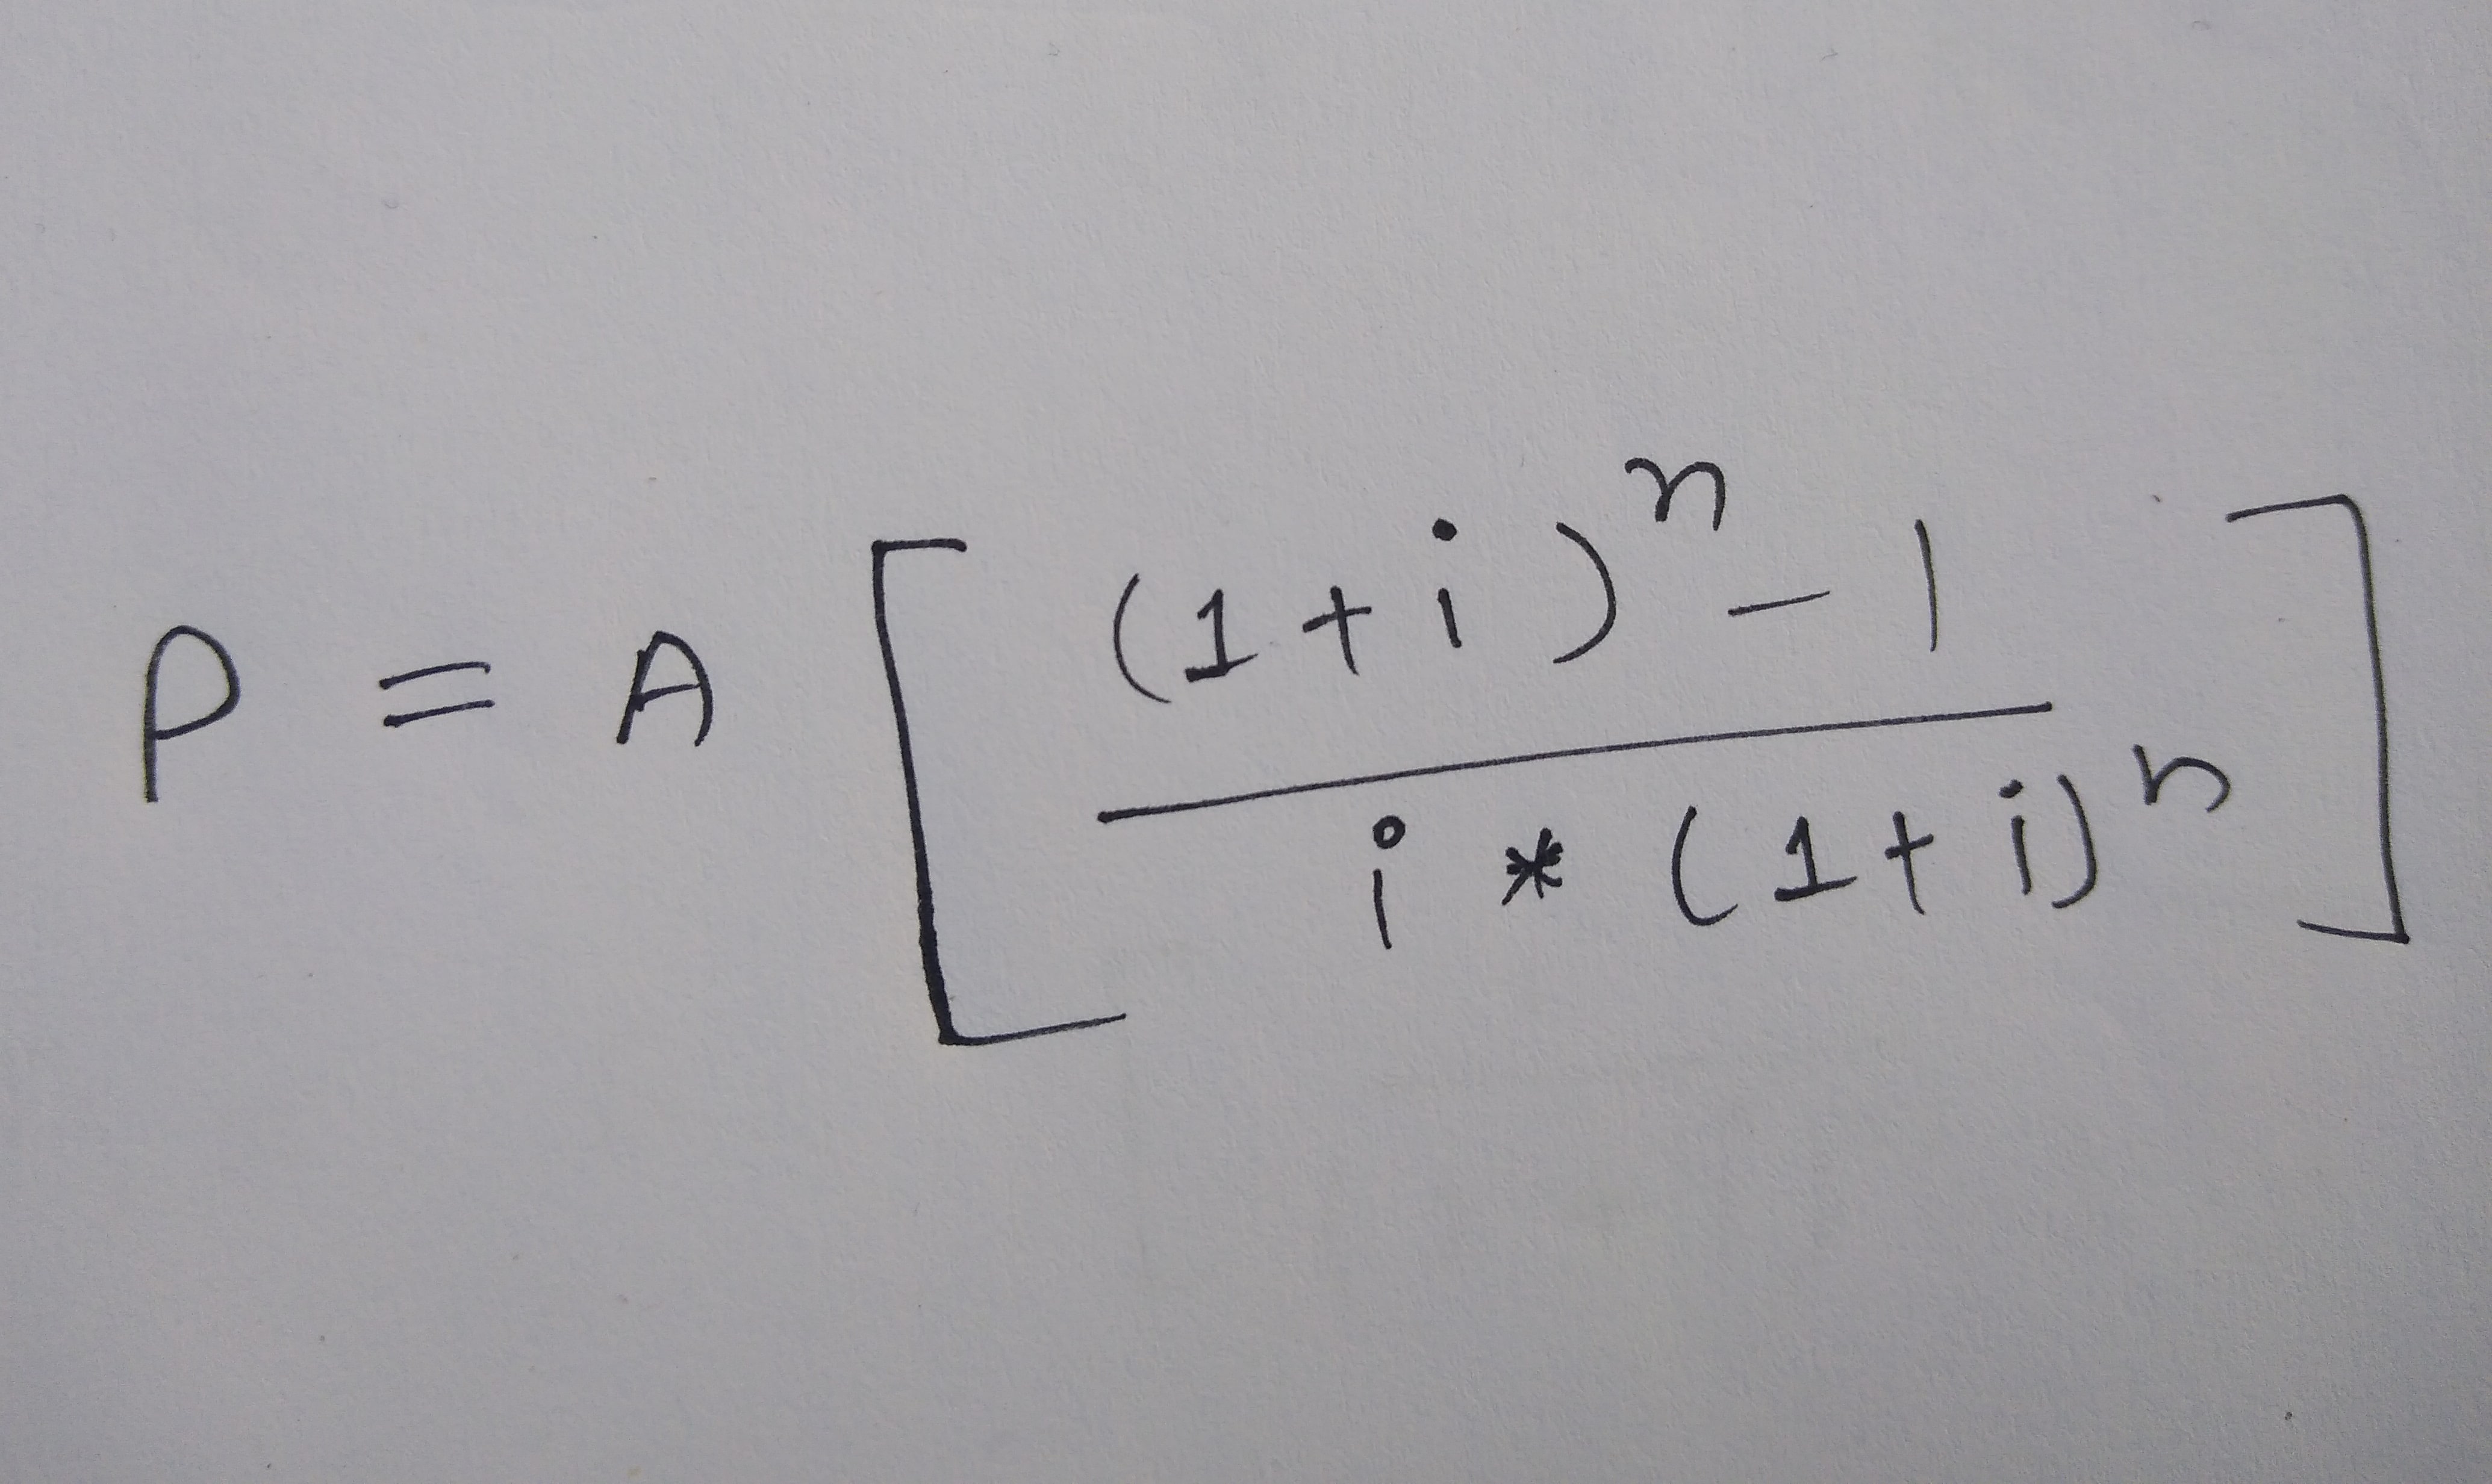 P = A [ ((1+i)^n - 1) / (i * (1+i)^n) ]